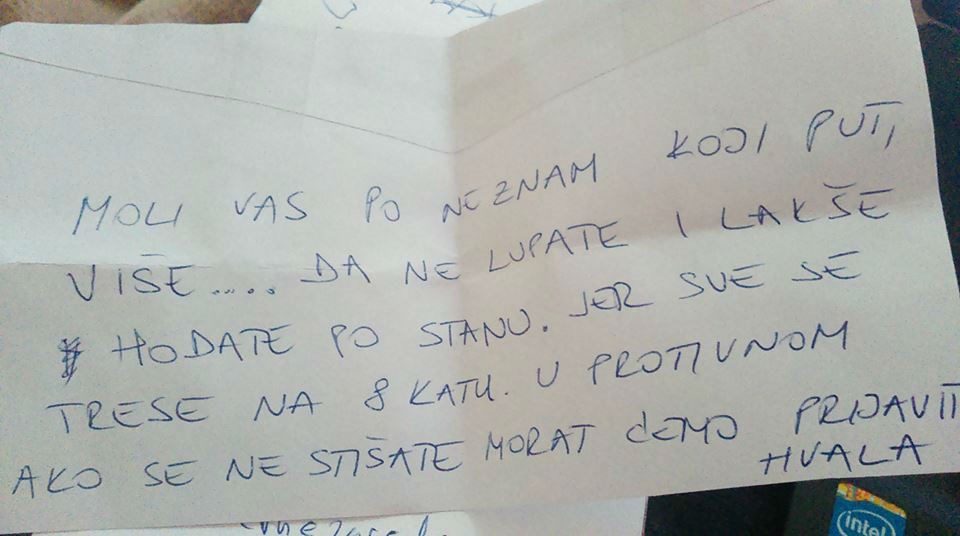 MOLI VAS PO NEZNAM KOJI PUT,
VIŠE..... DA NE LUPATE I LAKŠE
HODATE PO STANU. JER SVE SE
TRESE NA 8 KATU. U PROTIVNOM
AKO SE NE STIŠATE MORAT ĆEMO PRIJAVIT
HVALA
intel